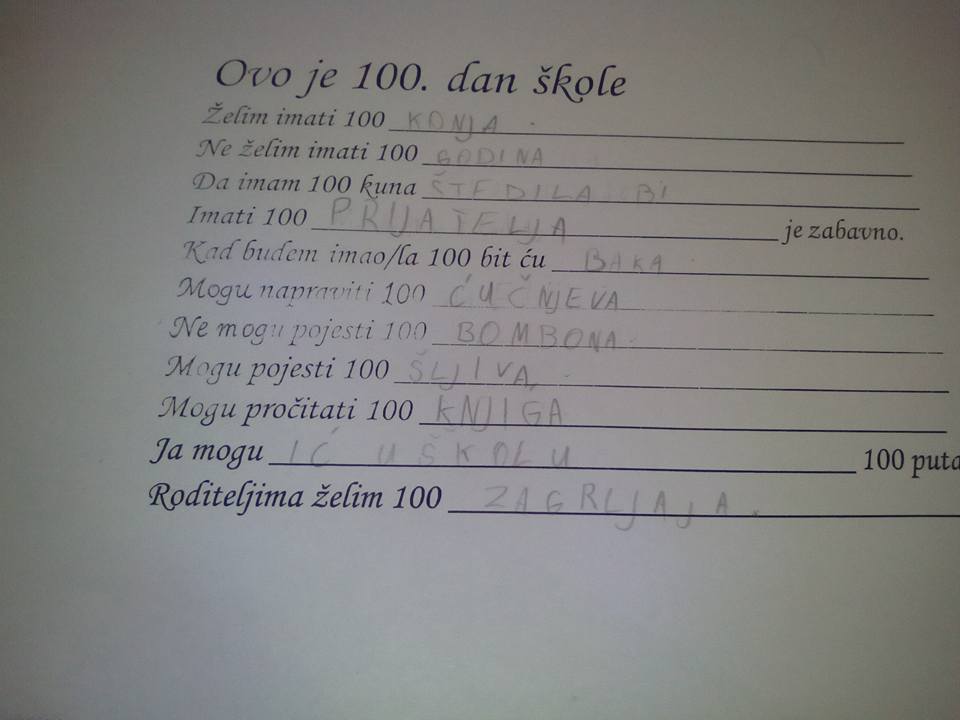 Ovo je 100. dan škole
Želim imati 100 KONJA
Ne želim imati 100 GODINA
Da imam 100 kuna ŠTEDILA BI
Imati 100 PRIJATELJA je zabavno.
Kad budem imao/la 100 bit ću BAKA
Mogu napraviti 100 ĆUČNJEVA
Ne mogu pojesti 100 BOMBONA
Mogu pojesti 100 ŠLJIVA
Mogu pročitati 100 KNJIGA
Ja mogu IĆ U ŠKOLU 100 puta
Roditeljima želim 100 ZAGRLJAJA.